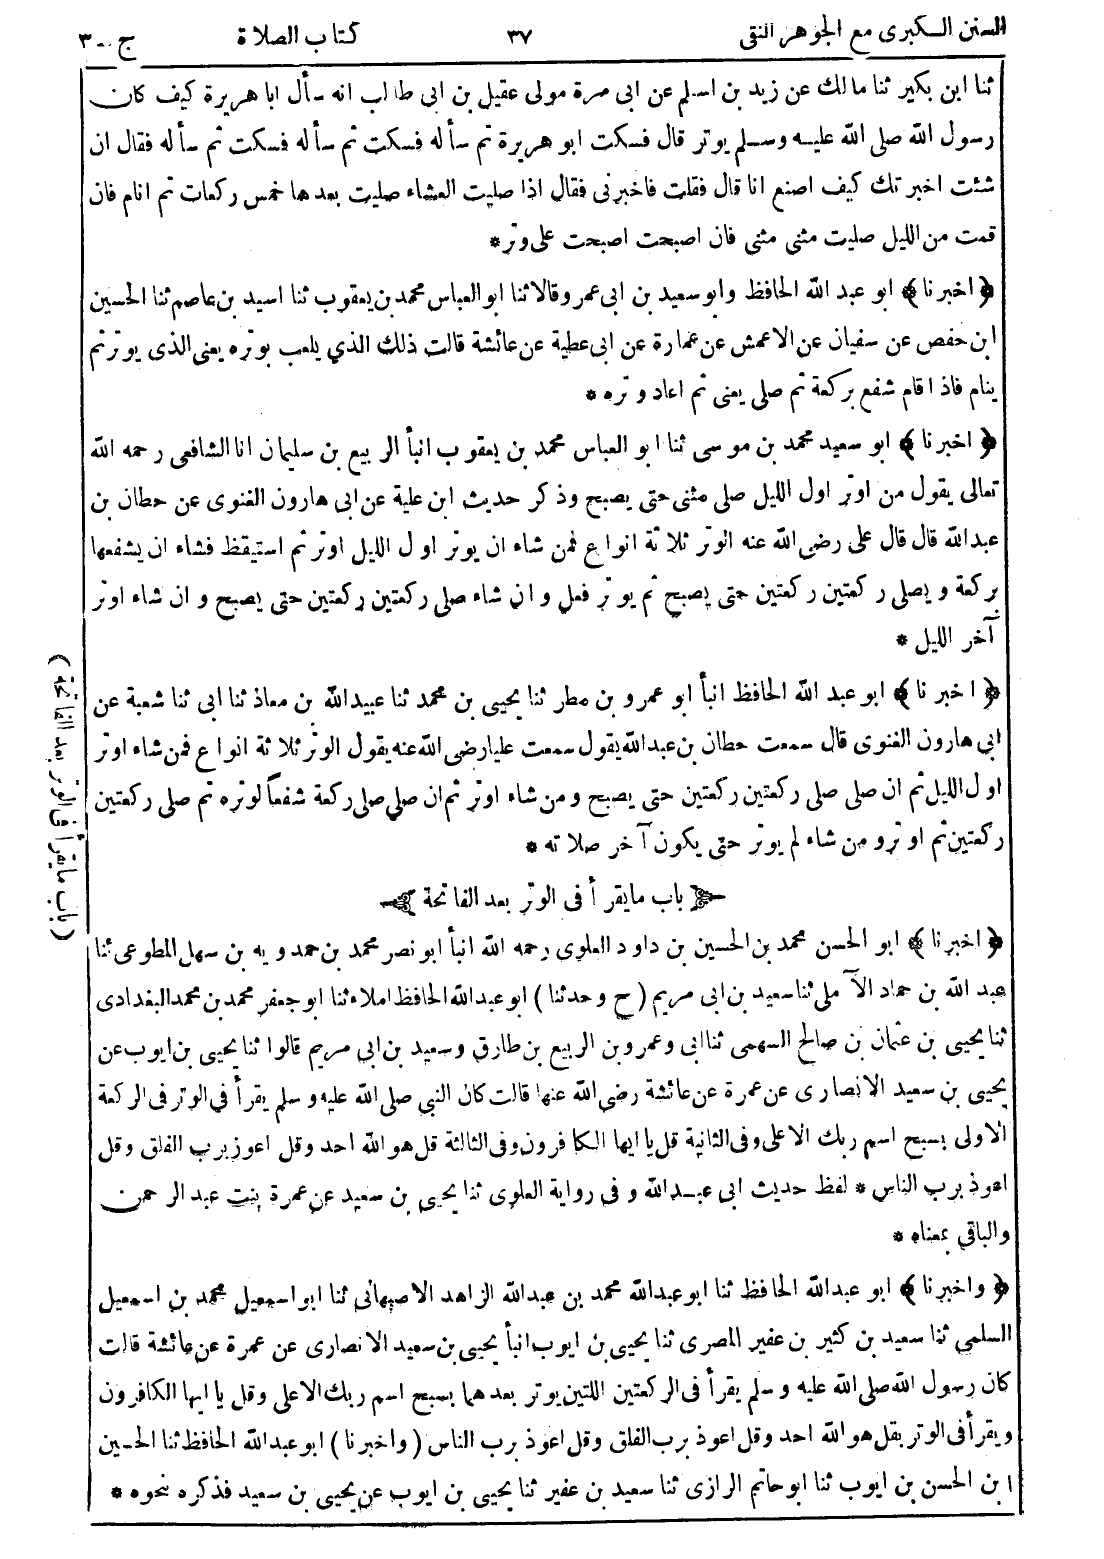 السنن الكبرى مع الجوهر النقى ٣٧ كتاب الصلاة ج - ٣
ثنا ابن بكير ثنا مالك عن زيد بن اسلم عن ابى مرة مولى عقيل بن ابى طالب انه سأل ابا هريرة كيف كان
رسول الله صلى الله عليه وسلم يوتر قال فسكت ابو هريرة ثم سأله فسكت ثم سأله فسكت ثم سأله فقال ان
شئت اخبرتك كيف اصنع انا قال فقلت فاخبرنى فقال اذا صليت العشاء صليت بعدها خمس ركعات ثم انام فان
قمت من الليل صليت مثنى مثنى فان اصبحت اصبحت على وتر *
﴿ اخبرنا ﴾ ابو عبد الله الحافظ وابو سعيد بن ابى عمرو قالا ثنا ابو العباس محمد بن يعقوب ثنا اسيد بن عاصم ثنا الحسين
ابن حفص عن سفيان عن الاعمش عن عمارة عن ابى عطية عن عائشة قالت ذلك الذي يلعب بوتره يعنى الذى يوتر ثم
ينام فاذا قام شفع بركعة ثم صلى يعنى ثم اعاد وتره *
﴿ اخبرنا ﴾ ابو سعيد محمد بن موسى ثنا ابو العباس محمد بن يعقوب انبأ الربيع بن سليمان انا الشافعى رحمه الله
تعالى يقول من اوتر اول الليل صلى مثنى حتى يصبح وذكر حديث ابن علية عن ابى هارون الغنوى عن حطان بن
عبد الله قال قال على رضى الله عنه الوتر ثلاثة انواع فمن شاء ان يوتر اول الليل اوتر ثم استيقظ فشاء ان يشفعها
بركعة ويصلى ركعتين ركعتين حتى يصبح ثم يوتر فعل وان شاء صلى ركعتين ركعتين حتى يصبح وان شاء اوتر
آخر الليل *
﴿ اخبرنا ﴾ ابو عبد الله الحافظ انبأ ابو عمرو بن مطر ثنا يحيى بن محمد ثنا عبيد الله بن معاذ ثنا ابى ثنا شعبة عن
ابى هارون الغنوى قال سمعت حطان بن عبد الله يقول سمعت عليا رضى الله عنه يقول الوتر ثلاثة انواع فمن شاء اوتر
اول الليل ثم ان صلى صلى ركعتين ركعتين حتى يصبح ومن شاء اوتر ثم ان صلى صلى ركعة شفعاً لوتره ثم صلى ركعتين
ركعتين ثم اوتر ومن شاء لم يوتر حتى يكون آخر صلاته *
باب ما يقرأ فى الوتر بعد الفاتحة
﴿ اخبرنا ﴾ ابو الحسن محمد بن الحسين بن داود العلوى رحمه الله انبأ ابو نصر محمد بن حمدويه بن سهل المطوعى ثنا
عبد الله بن حماد الآملى ثنا سعيد بن ابى مريم ( ح وحدثنا ) ابو عبد الله الحافظ املاء ثنا ابو جعفر محمد بن محمد البغدادى
ثنا يحيى بن عثمان بن صالح السهمى ثنا ابى وعمرو بن الربيع بن طارق وسعيد بن ابى مريم قالوا ثنا يحيى بن ايوب عن
يحيى بن سعيد الانصارى عن عمرة عن عائشة رضى الله عنها قالت كان النبى صلى الله عليه وسلم يقرأ فى الوتر فى الركعة
الاولى بسبح اسم ربك الاعلى وفى الثانية قل يا ايها الكافرون وفى الثالثة قل هو الله احد وقل اعوذ برب الفلق وقل
اعوذ برب الناس * لفظ حديث ابى عبد الله وفى رواية العلوى ثنا يحيى بن سعيد عن عمرة بنت عبد الرحمن
والباقى بمعناه *
﴿ واخبرنا ﴾ ابو عبد الله الحافظ ثنا ابو عبد الله محمد بن عبد الله الزاهد الاصبهانى ثنا ابو اسمعيل محمد بن اسمعيل
السلمى ثنا سعيد بن كثير بن عفير المصرى ثنا يحيى بن ايوب انبأ يحيى بن سعيد الانصارى عن عمرة عن عائشة قالت
كان رسول الله صلى الله عليه وسلم يقرأ فى الركعتين اللتين يوتر بعدهما بسبح اسم ربك الاعلى وقل يا ايها الكافرون
ويقرأ فى الوتر بقل هو الله احد وقل اعوذ برب الفلق وقل اعوذ برب الناس ( واخبرنا ) ابو عبد الله الحافظ ثنا الحسين
ابن الحسن بن ايوب ثنا ابو حاتم الرازى ثنا سعيد بن عفير ثنا يحيى بن ايوب عن يحيى بن سعيد فذكره نحوه *
( باب ما يقرأ فى الوتر بعد الفاتحة )